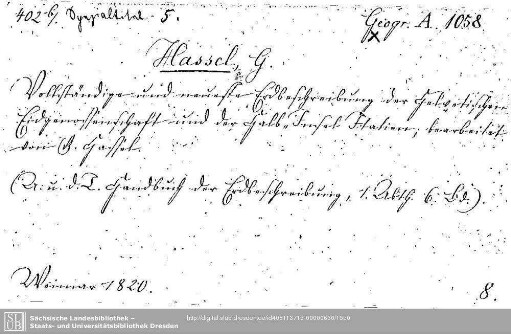 402-6/ Spezialtitel 5. Geogr. A. 1058
x
Hassel, G.
Vollständige und neueste Erdbeschreibung der Helvetischen
Eidgenossenschaft und der Halb-Insel Italien, bearbeitet
von G. Hassel.
(A. u. d. T. Handbuch der Erdbeschreibung, 1. Abth. 6. Bd.).
Weimar 1820. 8.
SLUB Sächsische Landesbibliothek –
Staats- und Universitätsbibliothek Dresden